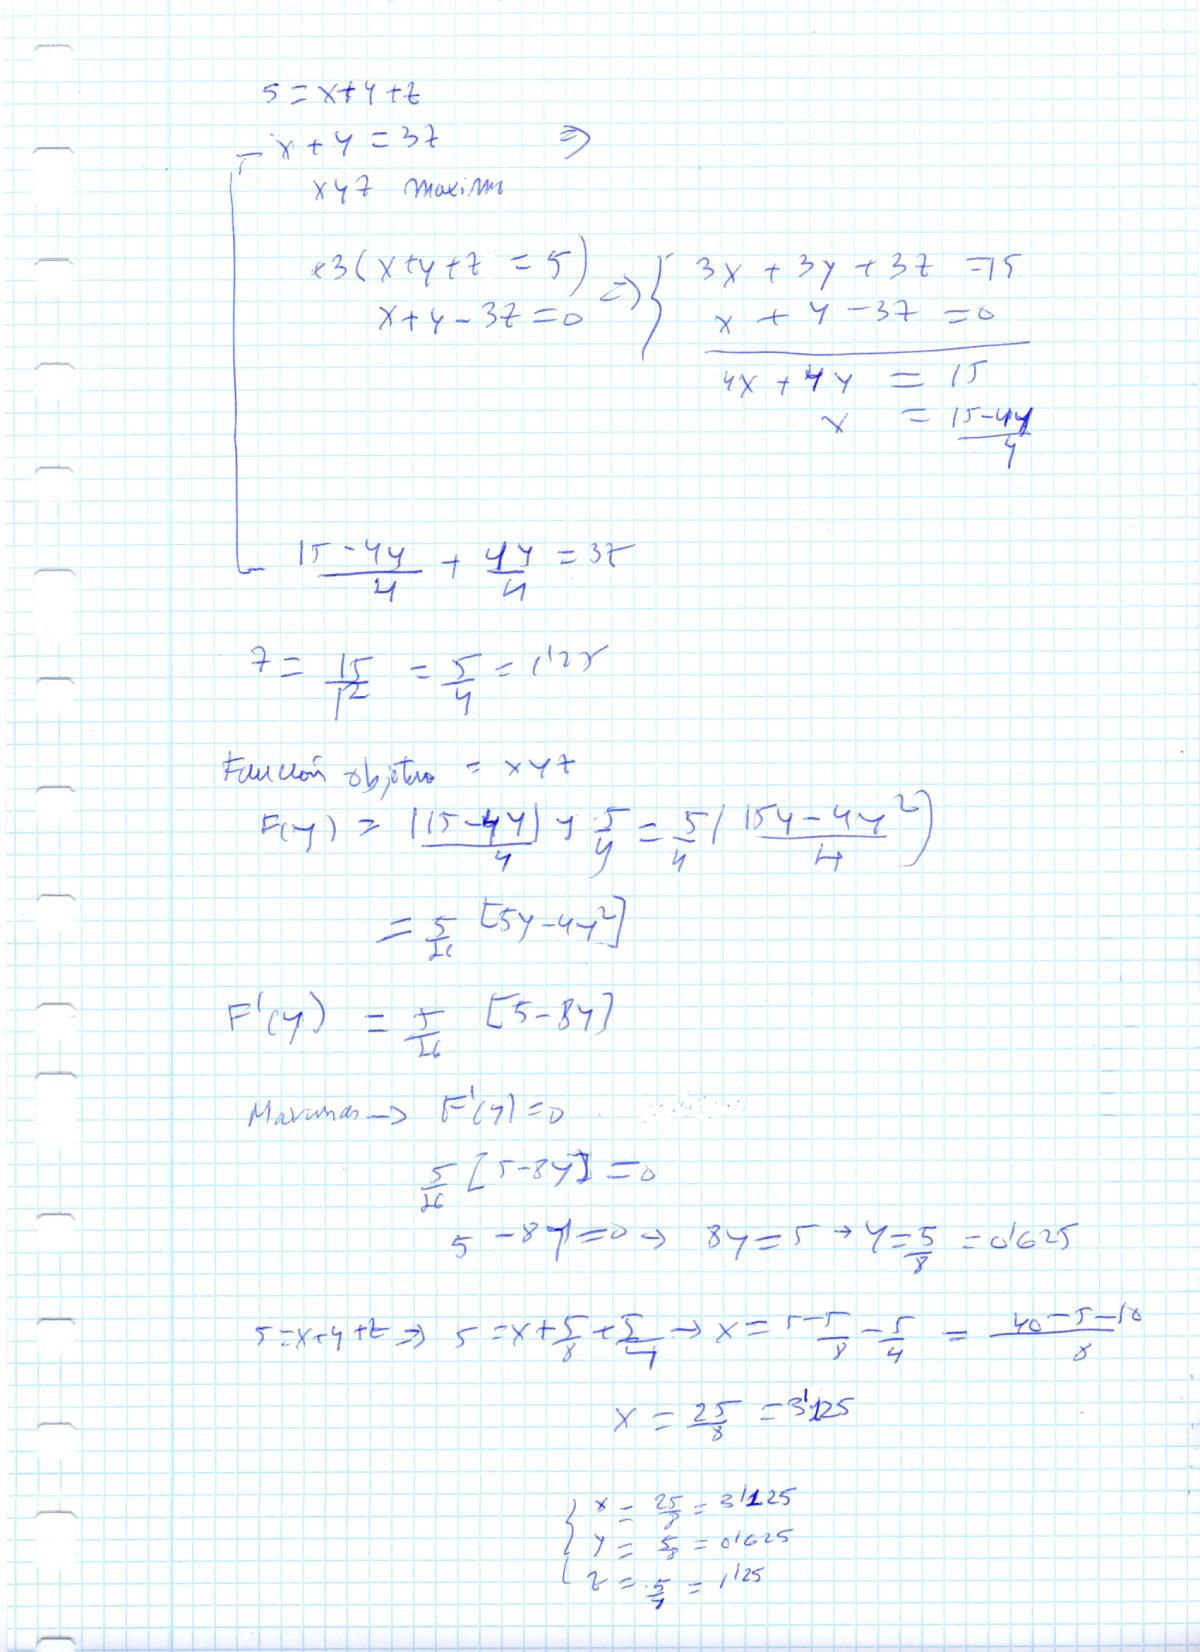 5 = x+y+z
x + y = 3z ⇒
xyz maximo
×3(x+y+z = 5) ⇒ { 3x + 3y + 3z = 15
x+y-3z=0 x + y - 3z = 0
4x + 4y = 15
x = (15-4y)/4
(15-4y)/4 + 4y/4 = 3z
z = 15/12 = 5/4 = 1'25
Función objetivo = xyz
F(y) = (15-4y)/4 y 5/4 = 5/4 (15y-4y²)/4)
= 5/16 [5y-4y²]
F'(y) = 5/16 [5-8y]
Maximos → F'(y)=0
5/16 [5-8y] = 0
5 - 8y = 0 → 8y = 5 → y = 5/8 = 0'625
5=x+y+z ⇒ 5 = x + 5/8 + 5/4 → x = 5 - 5/8 - 5/4 = (40-5-10)/8
x = 25/8 = 3'125
{ x = 25/8 = 3'125
y = 5/8 = 0'625
z = 5/4 = 1'25